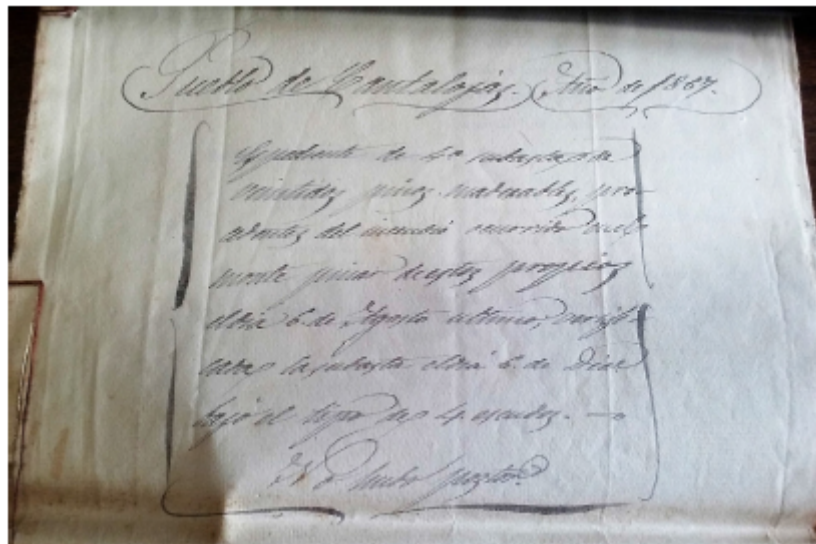 Pueblo de Cantalojas. Año de 1867.
Espediente de 4ª subasta de
veintidos pinos maderables, pro-
cedentes del incendio ocurrido en el
monte pinar de estos propios
el dia 6 de Agosto ultimo, verifi-
cada la subasta el dia 6 de Dice
bajo el tipo de 4 escudos.
No hubo postor